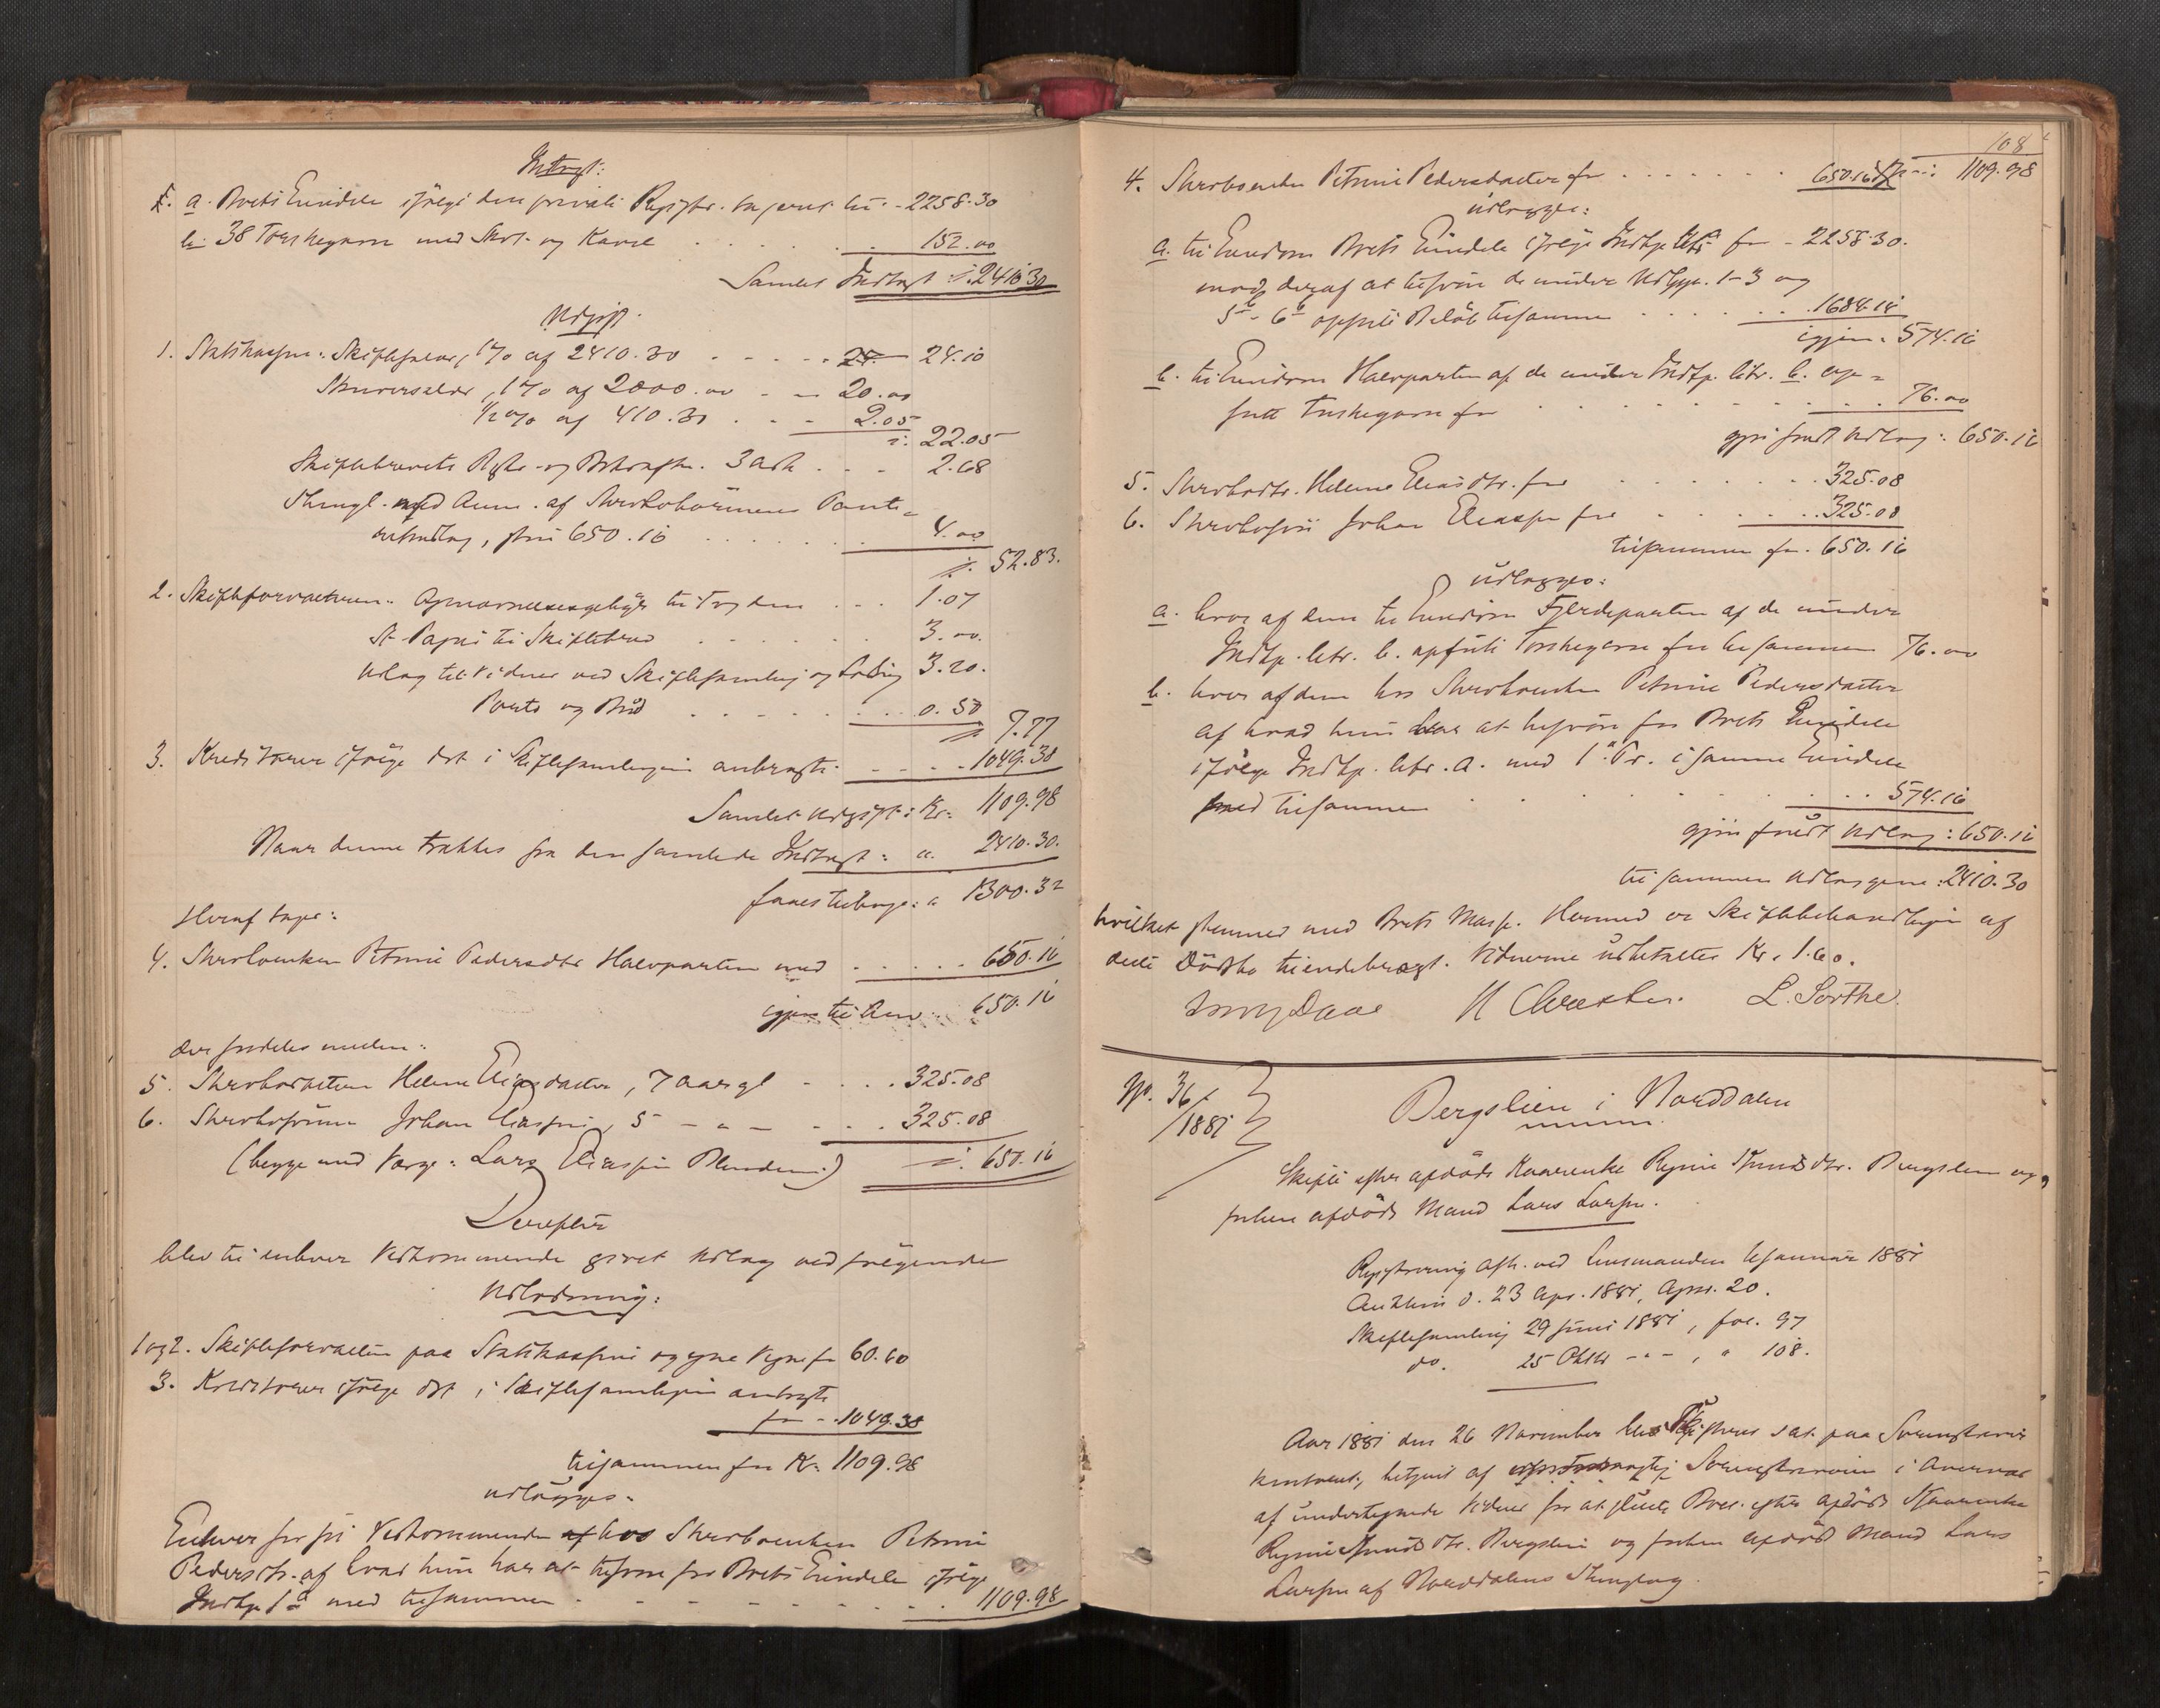 Indtægt:
1. a. Boets Eiendele ifølge den private Registr. og … til - 2258.30
b. 38 Torskegarn med … og Kavl 152.00
Samlet Indtægt :/: 2410.30
Udgift.
1. Statskassen: Skifteskat, 1% af 2410.30 24.10
Skriversalær, 1% af 2000.00 - - 20.00
1/2 % af 410.30 2.05
:/: 22.05
Skiftebrevets Besk. og Bekræft. 3 Ark 2.68
Thingl. med Anm. af Stervbobørnenes Pante-
, stor 650.16 4.00
:/: 52.83.
2. Skifteforvalteren: til Fogden 1.07
St. Papir til Skiftebrev 3.00.
Udlæg til Vidner ved Skiftesamling og Slutning 3.20.
Porto og Bud 0.50
:/: 7.77
3. Kreditorer ifølge det i Skiftesamlingen anbragte - 1049.38
Samlet Udgift: Kr. 1109.98
Naar denne trækkes fra den samlede Indtægt: " 2410.30.
faaes tilbage: " 1300.32
Heraf tager:
4. Stervboenken Petrine Pedersdtr Halvparten med 650.16
igjen til Arv 650.16
der fordeles mellem:
5. Stervbodatteren Helene Eliasdatter, 7 Aar gl 325.08
6. Stervbosønnen Johan Eliassen, 5 - " - 325.08
(begge med Værge: Lars Eliassen Blindheim) :/: 650.16
Derefter
blev til enhver Vedkommende givet Udlæg ved følgende
Udlodning:
1 og 2. Skifteforvalteren paa Statskassens og egne Vegne for 60.60
3. Kreditorer ifølge det i Skiftesamlingen anbragte
for - 1049.38
tilsammen for Kr. 1109.98
udlægges:
Enhver for sit Vedkommende hos Stervboenken Petrine
Pedersdtr. af hvad hun har at tilsvare for Boets Eiendele ifølge
Indtp. 1 a med tilsammen 1109.98
108
4. Stervboenken Petrine Pedersdatter for 650.16 1109.98
udlægges:
a. til Eiendom Boets Eiendele ifølge Indtp. litr. a for - 2258.30.
mod deraf at tilsvare de under Udlgp. 1-3 og
5 b - 6 b opførte Beløb tilsammen 1684.14
igjen: 574.16
b. til Eiendom Halvparten af de under Indtp. litr. b. op-
førte Torskegarn for 76.00
gjør fuldt Udlæg: 650.16
5. Stervbodtr. Helene Eliasdtr. for 325.08
6. Stervbosøn Johan Eliassen for 325.08
tilsammen for 650.16
udlægges:
a. hver af dem til Eiendom Fjerdeparten af de under
Indtp. litr. b. opførte Torskegarn for tilsammen 76.00
b. hver af dem hos Stervboenken Petrine Pedersdatter
af hvad hun har at tilsvare for Boets Eiendele
ifølge Indtp. litr. a. med 1ste Pr. i samme Eiendele
med tilsammen 574.16
gjør fuldt Udlæg: 650.16
tilsammen Udlæggene: 2410.30
hvilket stemmer med Boets Masse. Hermed er Skiftebehandlingen af
dette Dødsbo tilendebragt. Vidnerne udbetaltes Kr. 1.60.
Daae L. Sørthe.
No. 36/1881 }
Bergslien i Norddalen
Skifte efter afdøde Kaarenke Regine Knudsdtr. Bergslien og
forhen afdøde Mand Lars Larsen.
Registrering afh. ved Lensmanden 6 Januar 1881
Auktion d. 23 Apr. 1881, Apr. 20.
Skiftesamling 29 Juni 1881, fol. 97
do. 25 Oktbr - " - , " 108.
Aar 1881 den 26 November blev Skifteret sat paa Sorenskriver-
kontoret, betjent af Sorenskriveren i Overvær
af undertegnede Vidner for at slutte Boet efter afdøde Kaarenke
Regine Knudsdtr. Bergslien og forhen afdøde Mand Lars
Larsen af Norddalens Thinglag.